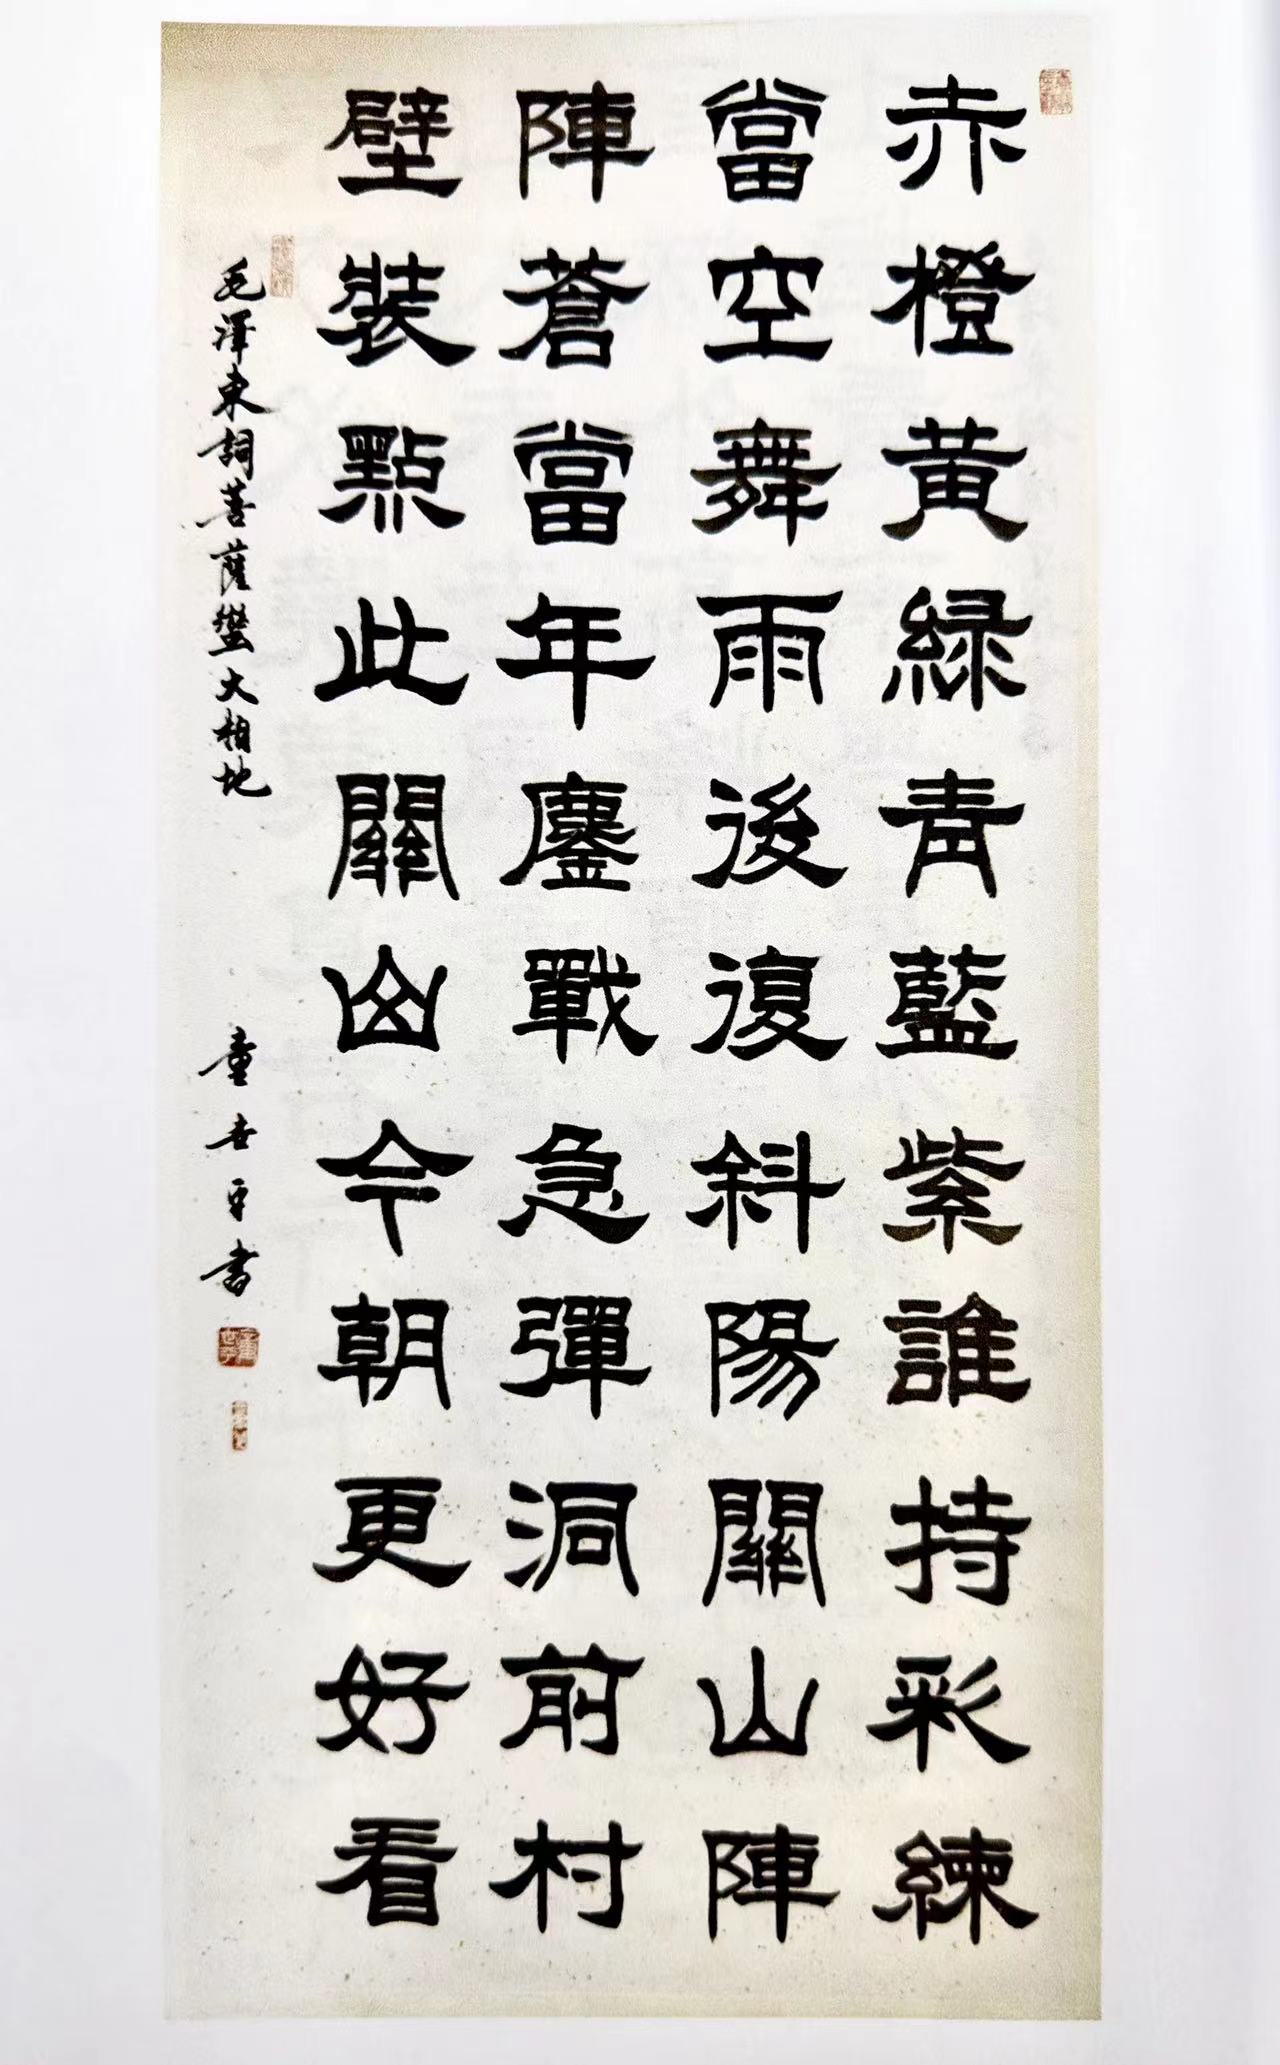 赤橙黄緑青藍紫誰持彩練
當空舞雨後復斜陽關山陣
陣蒼當年鏖戰急彈洞前村
壁裝點此關山今朝更好看
毛澤東詞菩薩蠻大柏地
童世平書